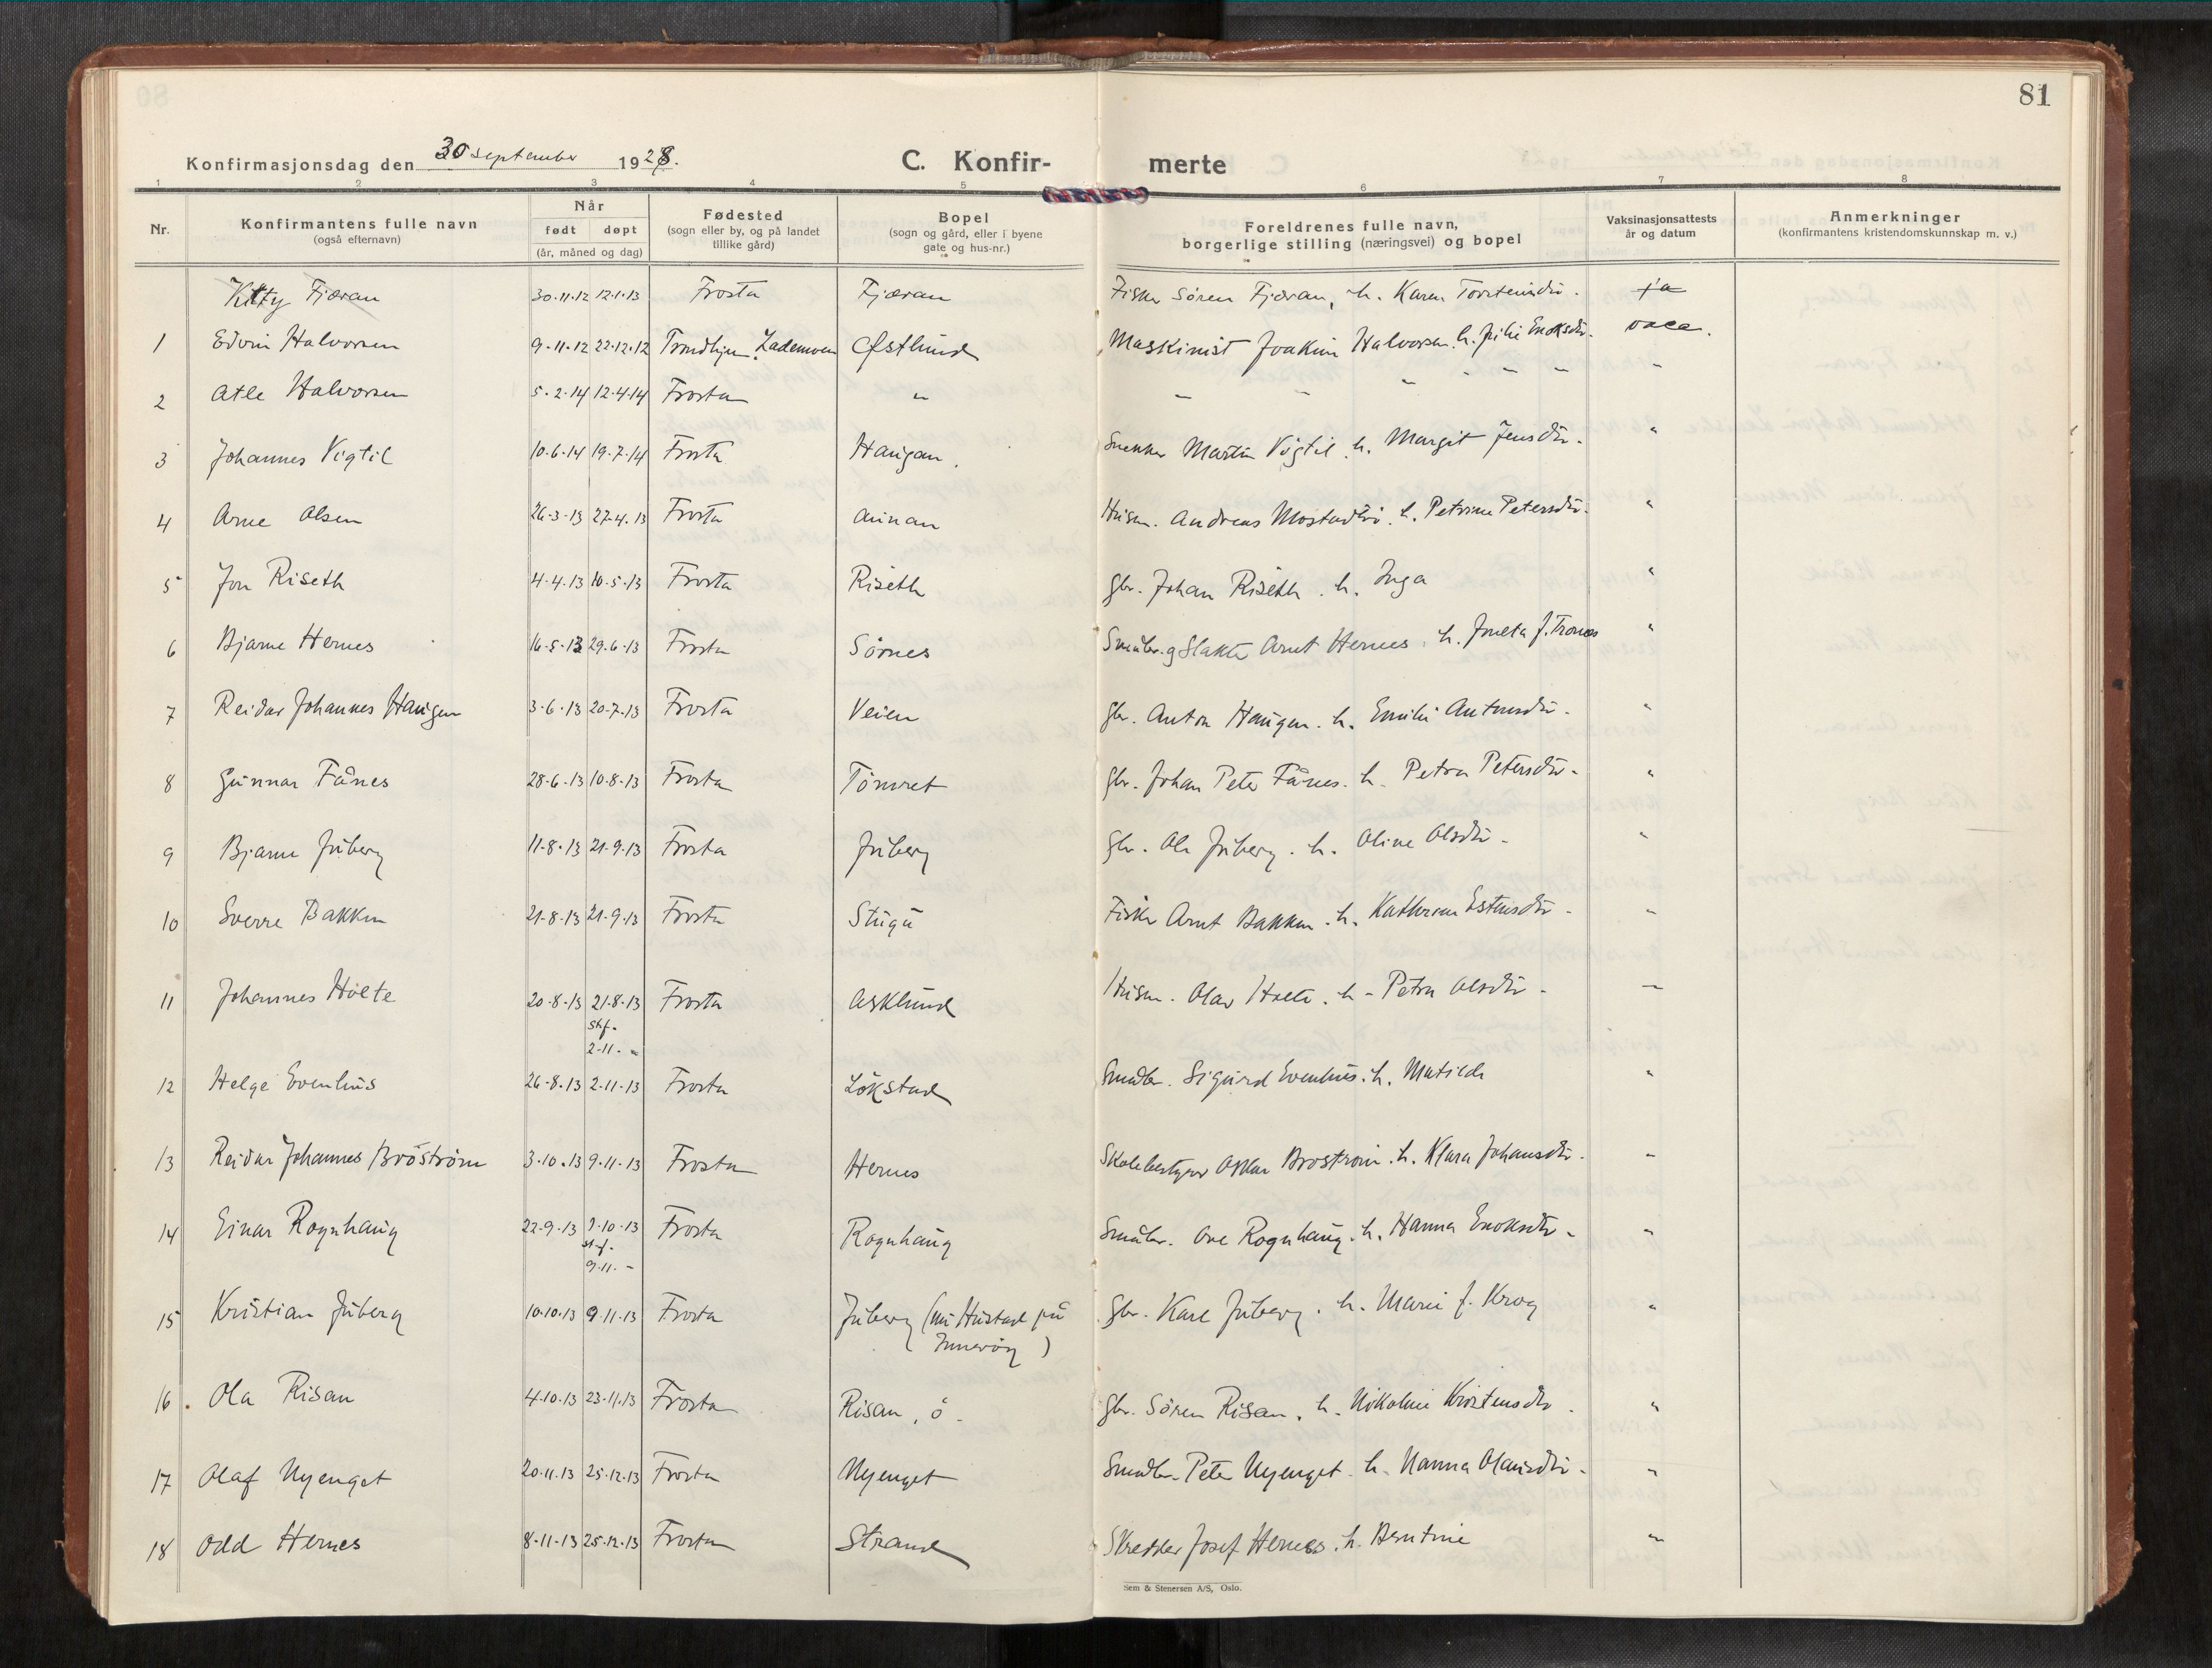 81
Konfirmasjonsdag den 30 september 1928.
C. Konfir-
merte
1 2 3 4 5 6 7 8
Nr.
Konfirmantens fulle navn
(også efternavn)
Når
født døpt
(år, måned og dag)
Fødested
(sogn eller by, og på landet
tillike gård)
Bopel
(sogn og gård, eller i byene
gate og hus-nr.)
Foreldrenes fulle navn,
borgerlige stilling (næringsvei) og bopel
Vaksinasjonsattests
år og datum
Anmerkninger
(konfirmantens kristendomskunnskap m. v.)
Kitty Fjæran 30-11-12 12-1-13 Frosta Fjæran Fisker Søren Fjæran, h. Karen Torstensdtr. ja
1 Edvin Halvorsen 9-11-12 22-12-12 Trondhjem. Lademoen Østlund Maskinist Joakim Halvorsen. h. Julie Enoksdtr. vacc.
2 Atle Halvorsen 5-2-14 12-4-14 Frosta " - - - - - - -
3 Johannes Vigtil 10-6-14 19-7-14 Frosta Haugan. Snekker Martin Vigtil. h. Margit Jensdtr. "
4 Arne Olsen 26-3-13 27-4-13 Frosta Aunan Husm. Andreas h. Petrine Petersdtr. "
5 Jon Riseth 4-4-13 16-5-13 Frosta Riseth Gbr. Johan Riseth. h. Inga "
6 Bjarne Hernes 16-5-13 29-6-13 Frosta Sørnes Småbr. og Slakter Arnt Hernes. h. J. Trones "
7 Reidar Johannes Haugen 3-6-13 20-7-13 Frosta Veien Gbr. Anton Haugen. h. Emilie Antonsdtr. "
8 Gunnar Fånes 28-6-13 10-8-13 Frosta Tømret Gbr. Johan Peter Fånes. h. Petra Petersdtr. "
9 Bjarne Juberg 11-8-13 21-9-13 Frosta Juberg Gbr. Ole Juberg. h. Oline Olsdtr. "
10 Sverre Bakken 21-8-13 21-9-13 Frosta Stugu Fisker Arnt Bakken. h. Kathrine Estensdtr. "
11 Johannes Holte 20-8-13 21-8-13 Frosta Asklund Husm. Olav Holte. h. Petra Olsdtr. -
stf.
2-11. -
12 Helge Evenhus 26-8-13 2-11-13 Frosta Løkstad Småbr. Sigurd Evenhus. h. Matilde "
13 Reidar Johannes Brøstrøm 3-10-13 9-11-13 Frosta Hernes Skolebestyrer Oskar Brøstrøm. h. Klara Johansdtr. "
14 Einar Rognhaug 22-9-13 7-10-13 Frosta Rognhaug Småbr. Ove Rognhaug. h. Hanna Enoksdtr. "
stf.
9-11. -
15 Kristian Juberg 10-10-13 9-11-13 Frosta Juberg (nu Hustad på Gbr. Karl Juberg. h. Marie J. Krog "
Inderøy)
16 Ola Risan 4-10-13 23-11-13 Frosta Risan, ø. Gbr. Søren Risan. h. Nikoline Kristensdtr. "
17 Olaf Nyenget 20-11-13 25-12-13 Frosta Nyenget Småbr. Peter Nyenget. h. Hanna Olausdtr. "
18 Odd Hernes 8-11-13 25-12-13 Frosta Strand Skredder Josef Hernes. h. Berntine "
Sem & Stenersen A/S, Oslo.